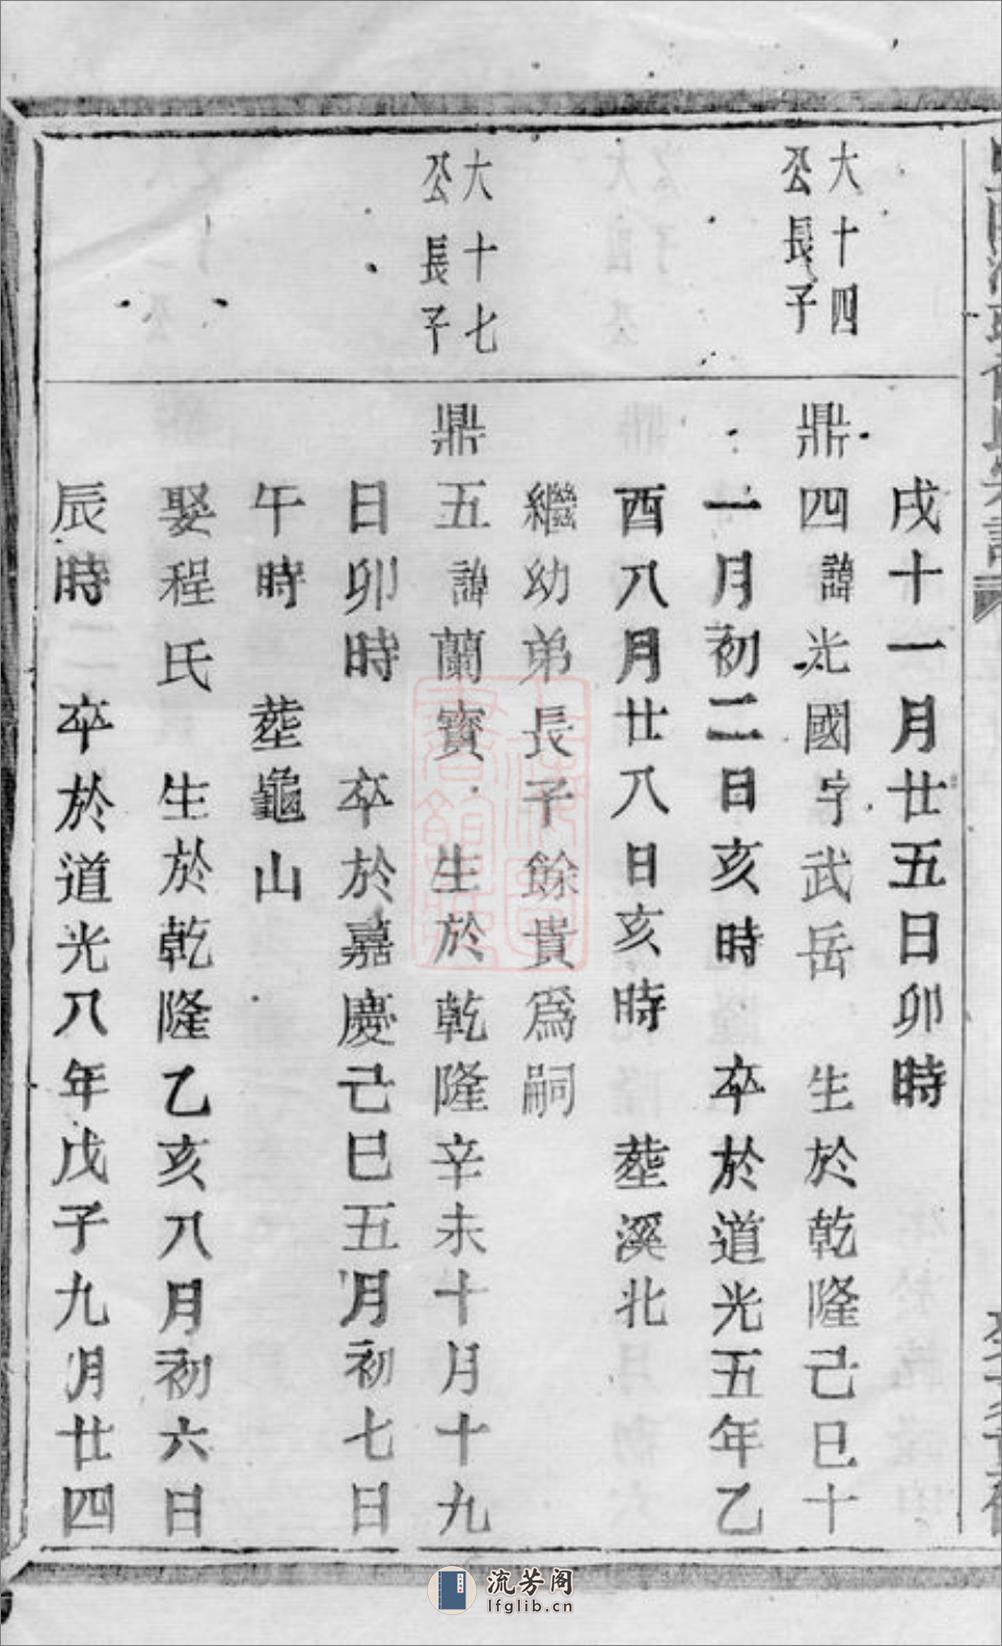 戌十一月廿五日卯時
大十四
公長子
鼎四諱光國字武岳 生於乾隆己巳十
一月初二日亥時 卒於道光五年乙
酉八月廿八日亥時 塟溪北
繼幼弟長子餘貴爲嗣
大十七
公長子
鼎五諱蘭寳 生於乾隆辛未十月十九
日卯時 卒於嘉慶己巳五月初七日
午時 塟龜山
娶程氏 生於乾隆乙亥八月初六日
辰時 卒於道光八年戊子九月廿四
流芳阁
lfglib.cn